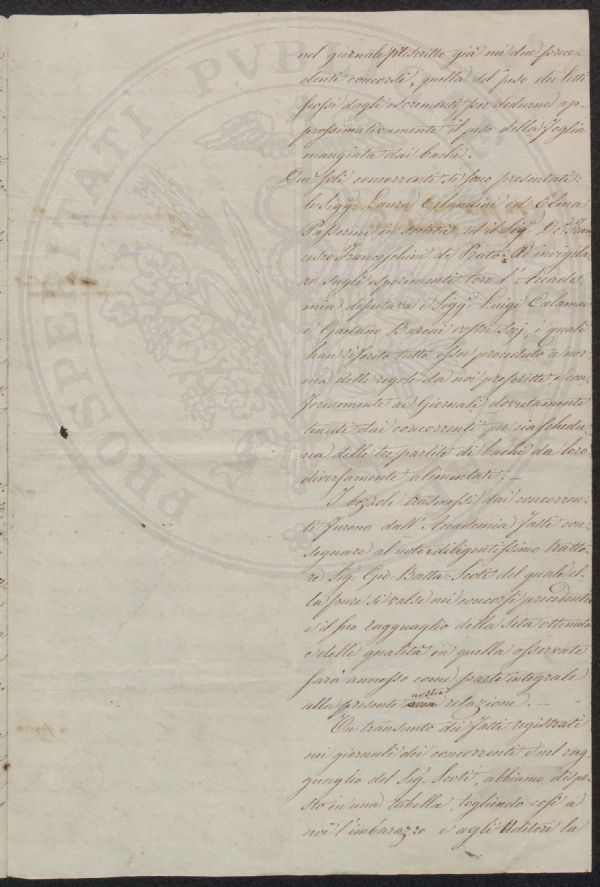 nel giornale prescritto già nei due prece-
denti concorsi, quella del peso dei letti
scossi dagli escrementi, per dedurne ap-
prossimativamente il peso della foglia
mangiata dai bachi.
Due soli concorrenti si sono presentati:
le Sigg.e Laura Orlandini ed Elena
Passerini in società ed il Sig.
Franceschini di Prato. Ad invigila-
re sugli esperimenti loro l'Accade-
mia deputava i Sigg.i Luigi Calamai
e Gaetano Baroni vostri socj, i quali
han riferito tutto esser proceduto a nor-
ma delle regole da noi prescritte e con-
formemente ai Giornali dovutamente
tenuti dai concorrenti per ciaschedu-
na delle tre partite di bachi da loro
diversamente alimentati. —
I bozzoli trasmessi dai concorren-
ti furono dall'Accademia fatti con-
segnare al noto e diligentissimo tratto-
re Sig. Gio: Batta: Scoti del quale el-
la pure si valse nei concorsi precedenti
e il suo ragguaglio della seta ottenuta
e delle qualità in quella osservate
sarà annesso come parte integrale
alla presente nostra relazione. —
Un transunto dei fatti registrati
nei giornali dei concorrenti e nel rag-
guaglio del Sig. Scoti, abbiamo dispo-
sto in una tabella, togliendo così a
noi l'imbarazzo e agli Uditori la
PROSPERITATI PVBLICAE